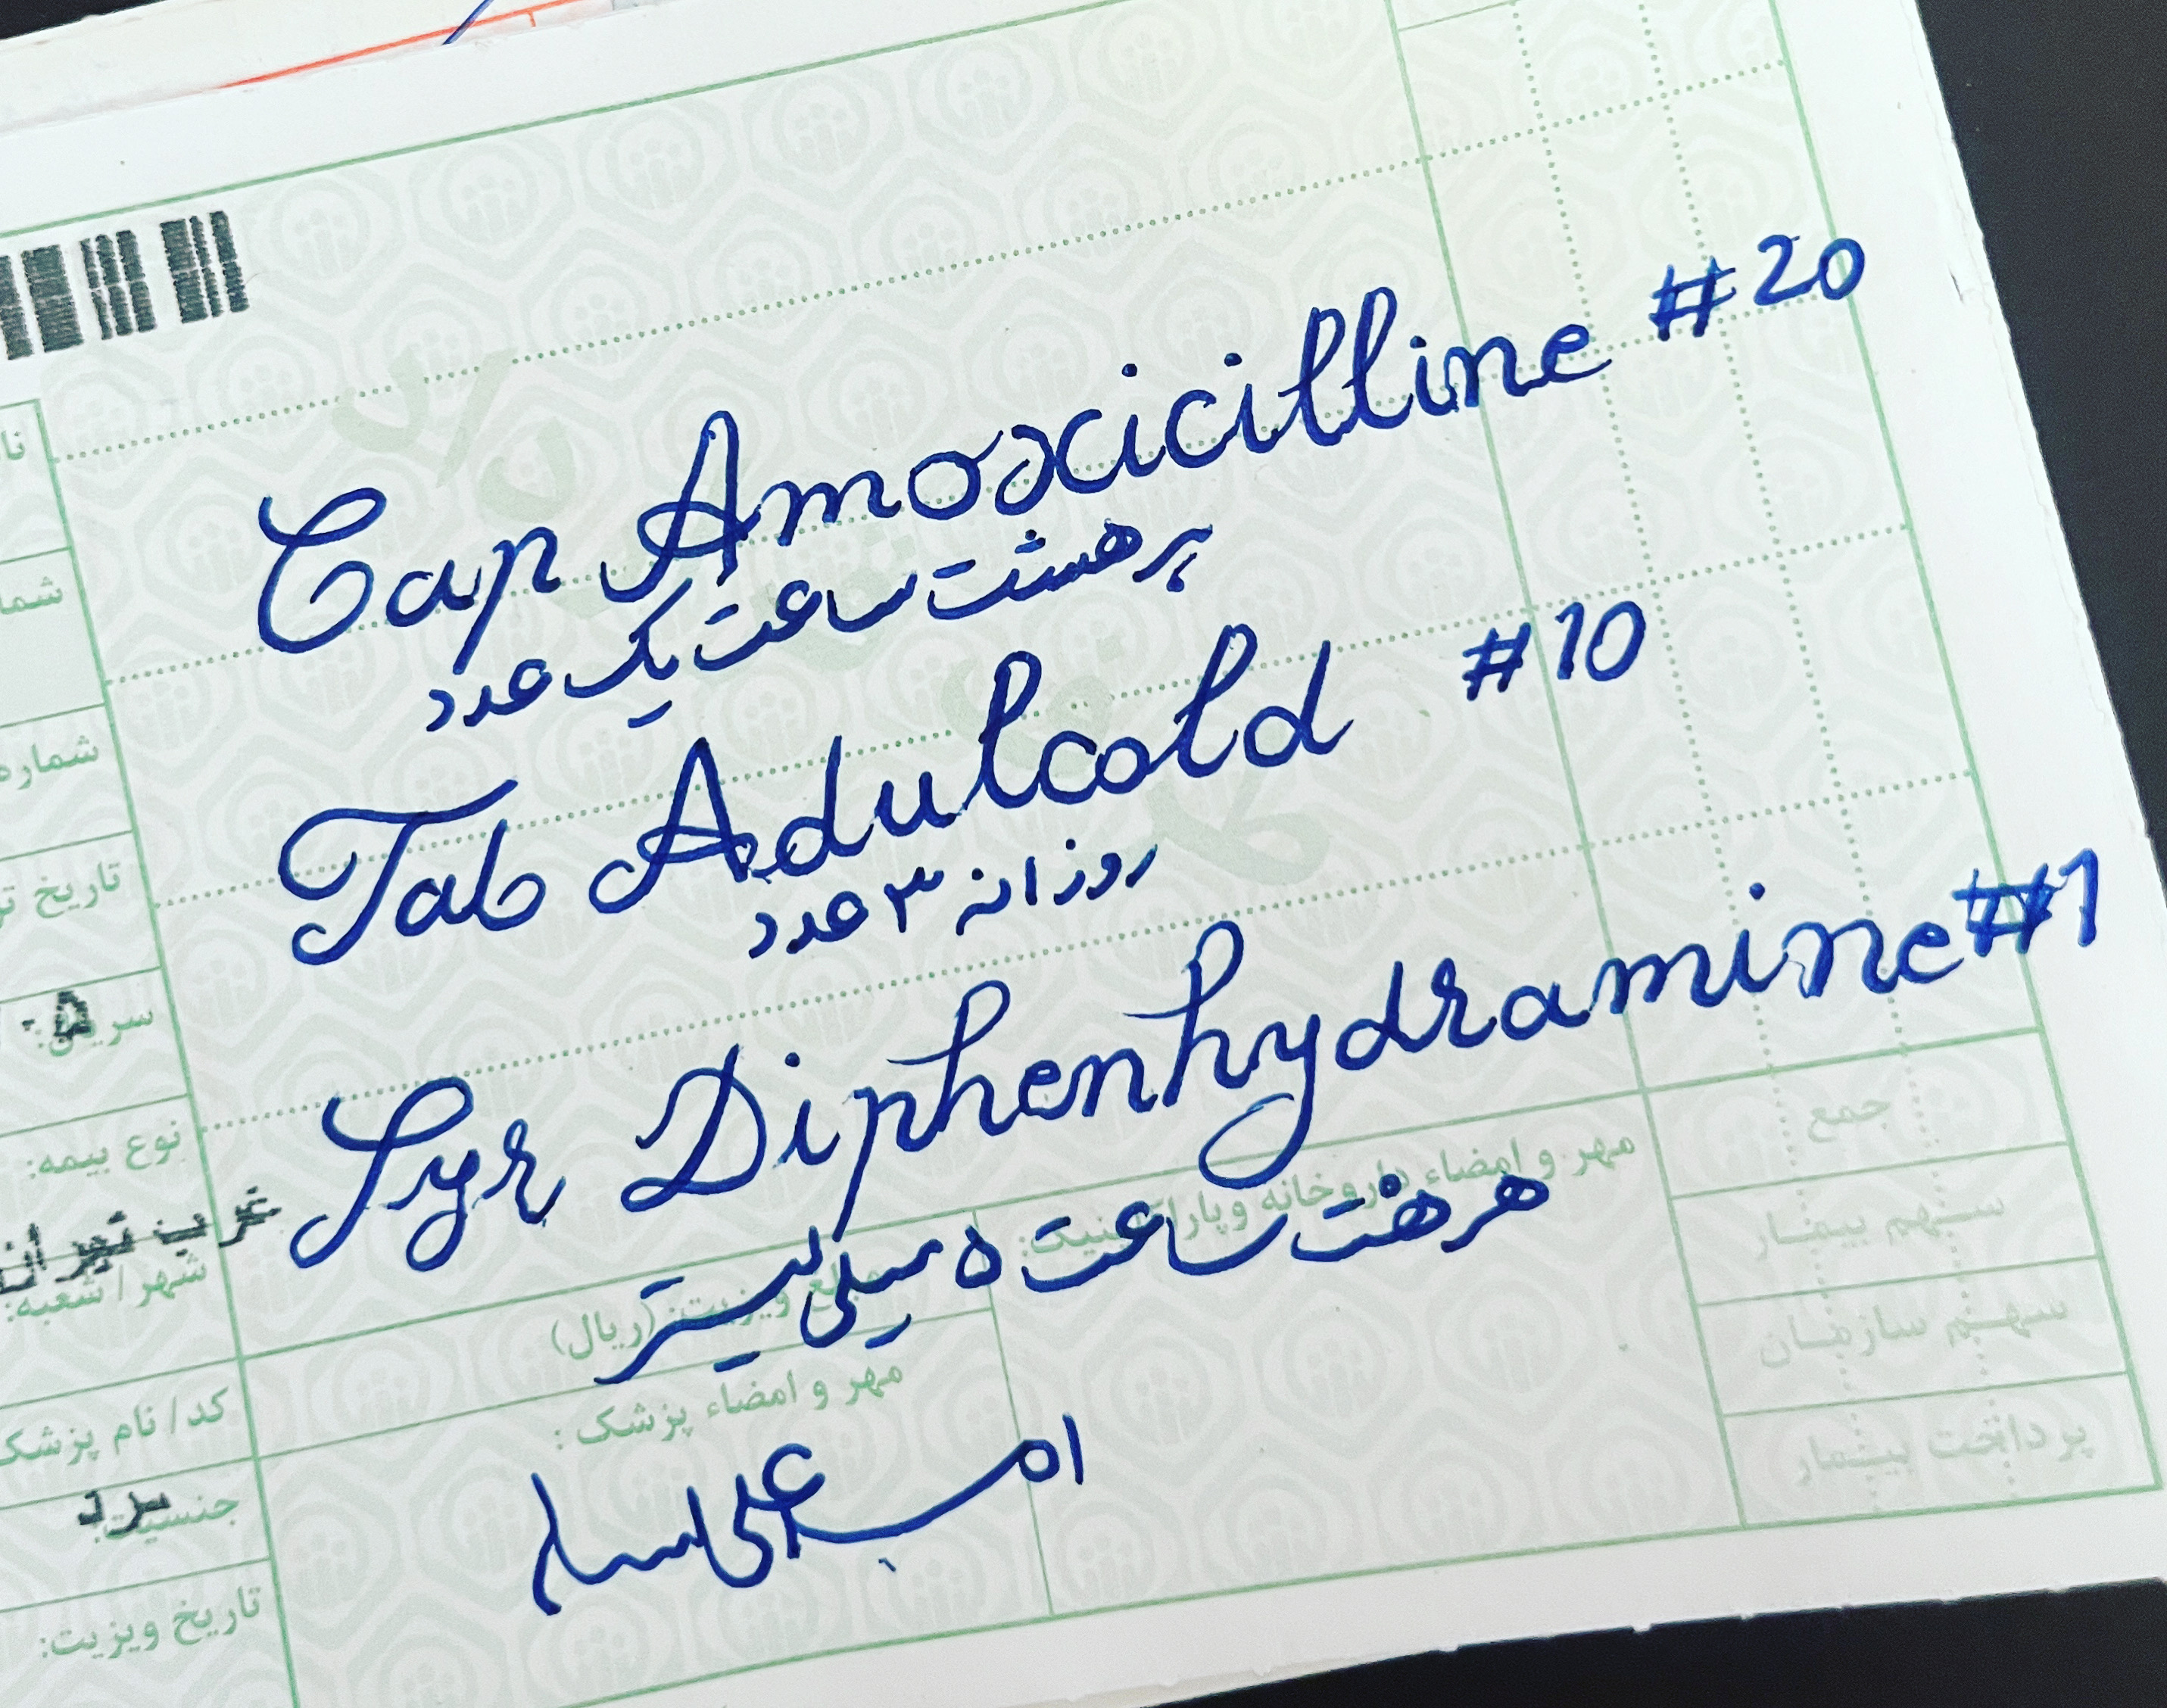 Cap Amoxicilline #20
هر هشت ساعت یک عدد
Tab Adulcold #10
روزانه ۳ عدد
Syr Diphenhydramine #1
هر هشت ساعت ۵ میلی لیتر
تاریخ
نوع بیمه:
غرب تهران
شهر / شعبه:
کد / نام پزشک
جنسیت:
مرد
تاریخ ویزیت:
مبلغ ویزیت: (ریال)
مهر و امضاء پزشک:
مهر و امضاء داروخانه و پاراکلینیک:
جمع
سهم بیمار
سهم سازمان
پرداخت بیمار